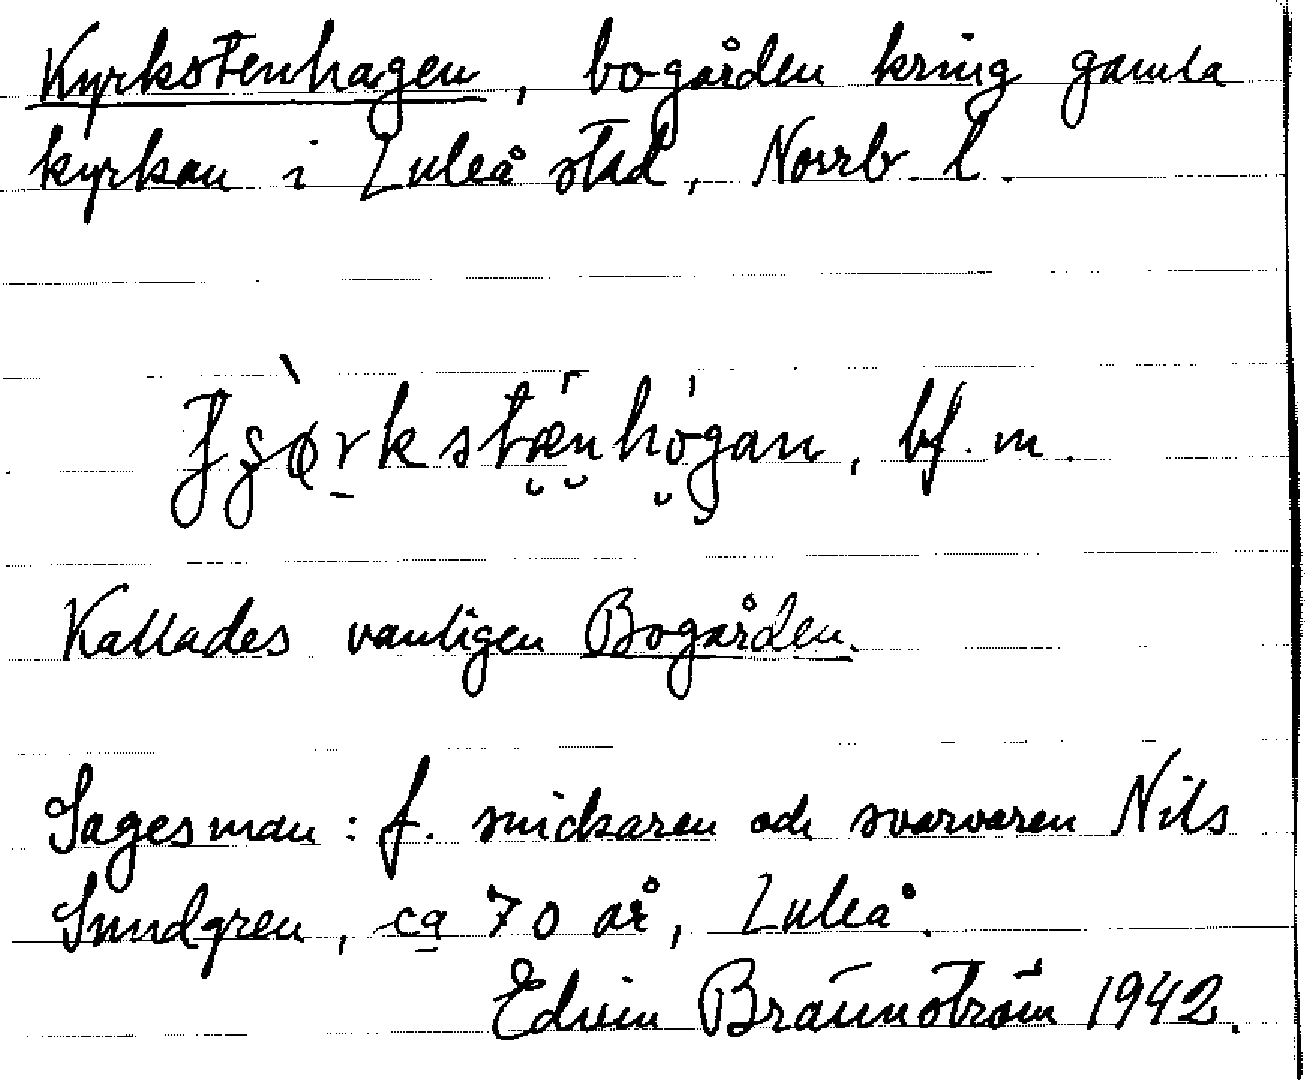 Kyrkstenhagen, bogården kring gamla
kyrkan i Luleå stad, Norrb. l.
bf. m.
Kallades vanligen Bogården.
Sagesman: f. snickaren och svarvaren Nils
Sundgren, ca 70 år, Luleå.
Edvin Brännström 1942.